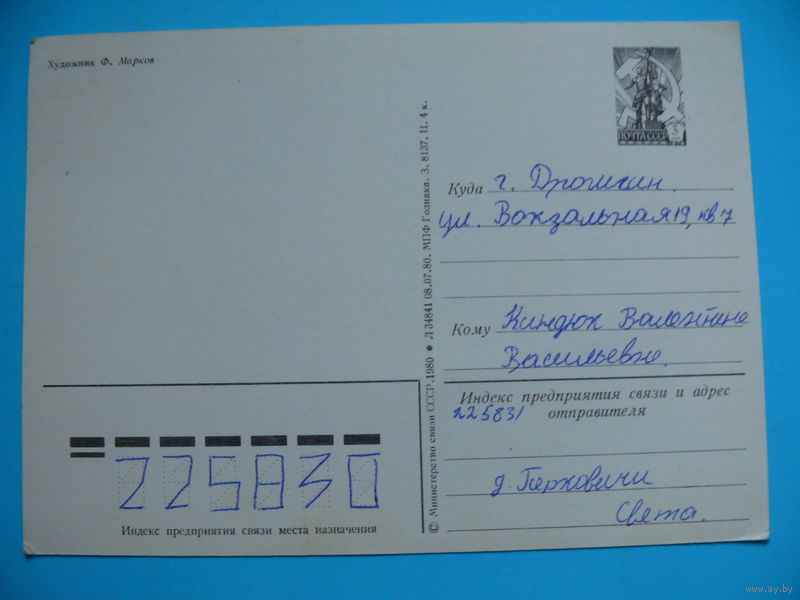 Художник Ф. Марков
ПОЧТА СССР
3
Куда г. Дрогичин.
ул. Вокзальная 19, кв 7
Кому Киндюк Валентине
Васильевне.
Индекс предприятия связи и адрес
225831 отправителя
д. Перковичи
Света.
225830
Индекс предприятия связи места назначения
© Министерство связи СССР. 1980 ● Л 34841 08.07.80. МПФ Гознака. З. 8137. Ц. 4 к.
www.ay.by